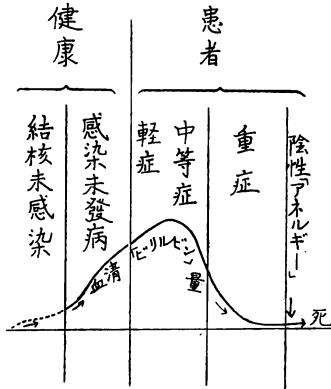 健康
患者
結核未感染
感染未發病
軽症
中等症
重症
陰性「アネルギー」
血清「ビリルビン」量
死